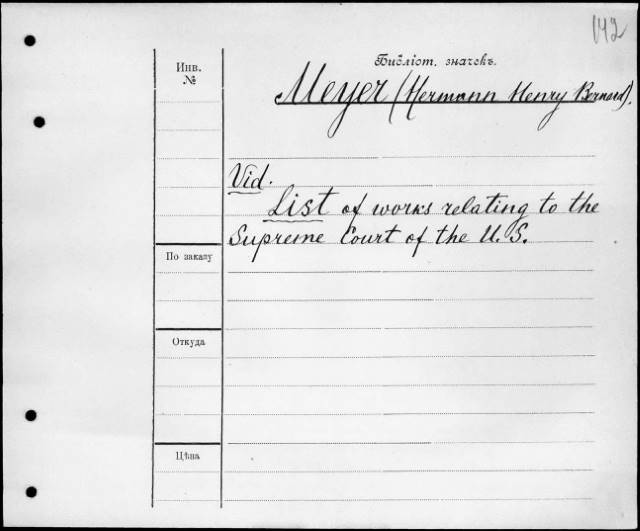 142
Библіот. значекъ.
Инв.
№
Meyer (Hermann Henry Bernard).
Vid.
List of works relating to the
Supreme Court of the U.S.
По заказу
Откуда
Цѣна